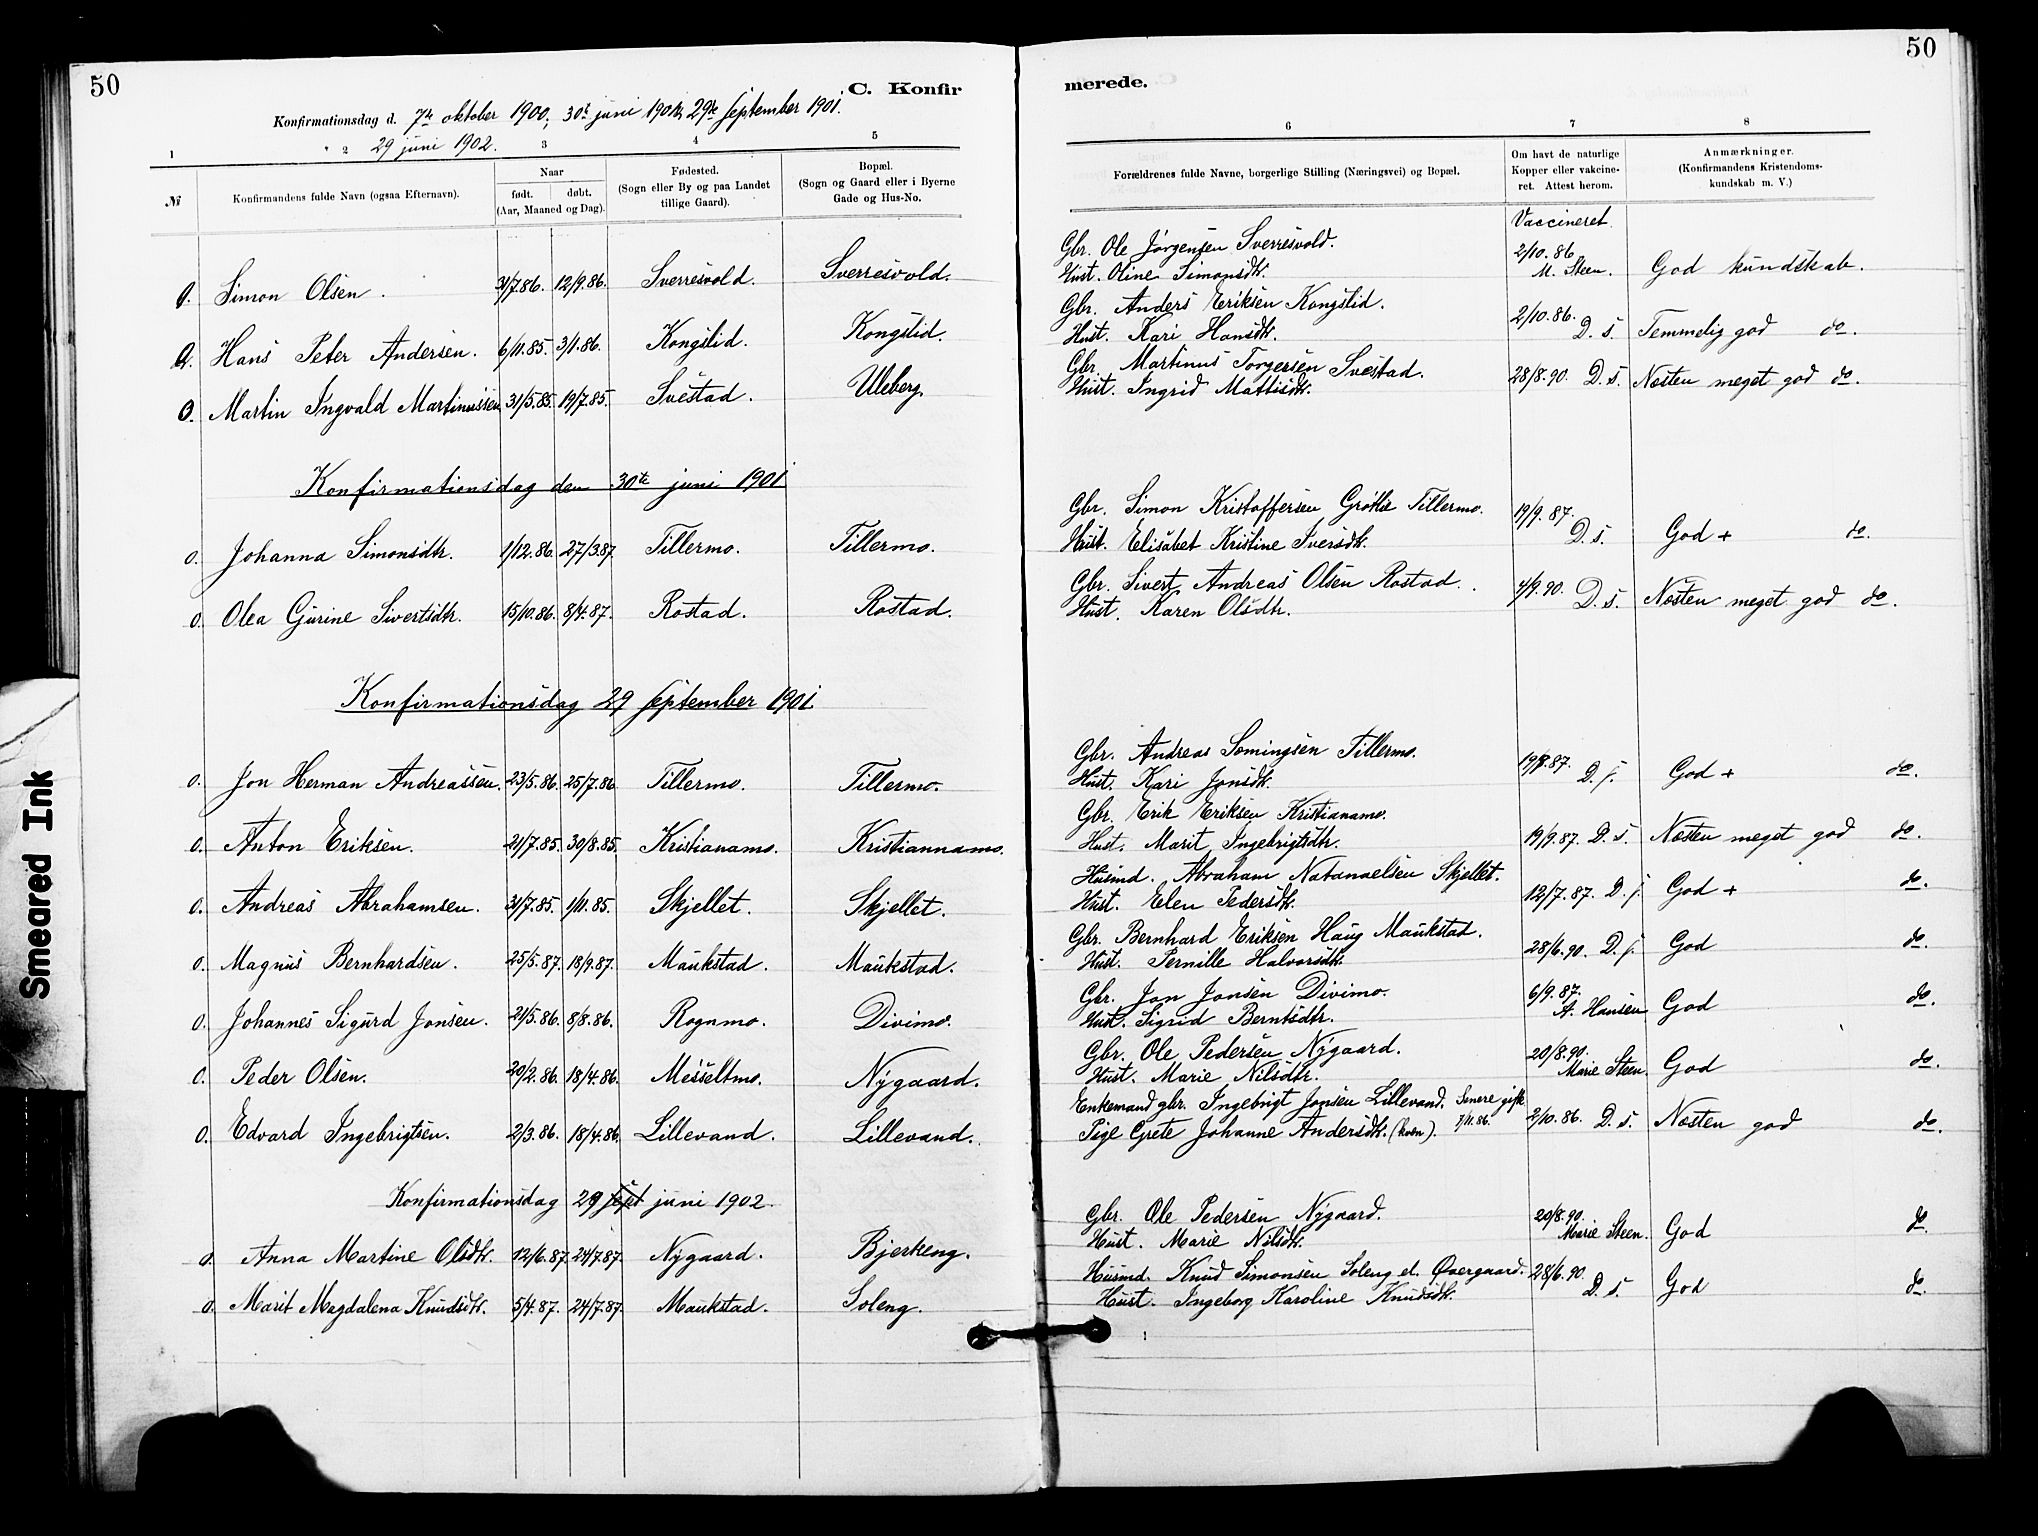 50
50
C. Konfir
merede.
Konfirmationsdag d. 7de oktober 1900, 30te juni 1901, 29de September 1901.
" " 29 juni 1902.
1 2 3 4 5 6 7 8
№ Konfirmandens fulde Navn (ogsaa Efternavn). Naar født. døbt. (Aar, Maaned og Dag). Fødested. (Sogn eller By og paa Landet tillige Gaard). Bopæl. (Sogn og Gaard eller i Byerne Gade og Hus-No. Forældrenes fulde Navne, borgerlige Stilling (Næringsvei) og Bopæl. Om havt de naturlige Kopper eller vakcineret. Attest herom. Anmærkninger. (Konfirmandens Kristendomskundskab m. V.)
Vaccineret.
Gbr. Ole Jörgensen Sverresvold.
0. Simon Olsen. 31/7 86. 12/9. 86. Sverresvold. Sverresvold. Hust. Oline Simonsdtr. 2/10. 86. M. Steen. God kundskab.
Gbr. Anders Eriksen Kongslid.
0. Hans Peter Andersen. 6/11. 85. 3/1. 86. Kongslid. Kongslid. Hust. Kari Hansdtr. 2/10. 86. D. s. Temmelig god do.
Gbr. Martinus Torgersen Svestad.
0. Martin Ingvald Martinussen 31/5. 85. 19/7. 85. Svestad. Uleberg. Hust. Ingrid Mattisdtr. 28/8. 90. D. s. Næsten meget god do.
Konfirmationsdag den 30te juni 1901
Gbr. Simon Kristoffersen Tillermo.
0. Johanna Simonsdtr. 1/12. 86. 27/3 87. Tillermo. Tillermo. Hust. Elisabet Kristine Iversdtr. 19/9. 87. D. s. God + do.
Gbr. Sivert Andreas Olsen Rostad.
0. Olea Gurine Sivertsdtr. 15/10. 86. 8/4. 87. Rostad. Rostad. Hust. Karen Olsdtr. 4/9. 90. D. s. Næsten meget god do.
Konfirmationsdag 29 September 1901
Gbr. Andreas Somingsen Tillermo.
0. Jon Herman Andreassen. 23/5. 86. 25/7. 86 Tillermo. Tillermo. Hust. Kari Jonsdtr. 19/9. 87. D. s. God + do.
Gbr. Erik Eriksen Kristianamo.
0. Anton Eriksen. 21/7. 85. 30/8. 85. Kristianamo. Kristiannamo. Hust. Marit Ingebrigtsdtr. 19/9. 87. D. s. Næsten meget god do.
Husmd. Abraham Natanaelsen Skjellet.
0. Andreas Abrahamsen. 31/7. 85. 1/11. 85. Skjellet. Skjellet. Hust. Elen Pedersdtr. 12/7. 87. D. s. God + do.
Gbr. Bernhard Eriksen Haug Maukstad.
0. Magnus Bernhardsen. 25/5. 87. 18/9. 87. Maukstad. Maukstad. Hust. Pernille Halvorsdtr. 28/6. 90. D. s. God do.
Gbr. Jon Jonsen Divimo.
0. Johannes Sigurd Jonsen. 21/5. 86. 8/8. 86. Rognmo. Divimo. Hust. Sigrid Berntsdtr. 6/9. 87. A. Hansen God do.
Gbr. Ole Pedersen Nygaard.
0. Peder Olsen. 20/2. 86. 18/4. 86. Messeltmo. Nygaard. Hust. Marie Nilsdtr. 20/8. 90. Marie Steen. God do.
Enkemand gbr. Ingebrigt Jonsen Lillevand. Senere gift 7/11. 86.
0. Edvard Ingebrigtsen. 2/3. 86. 18/4. 86. Lillevand. Lillevand. Pige Grete Johanne Andersdtr. (kven). 2/10. 86. D. s. Næsten god do.
Konfirmationsdag 29 sept juni 1902.
Gbr. Ole Pedersen Nygaard.
0. Anna Martine Olsdtr. 12/6. 87. 24/7. 87. Nygaard. Bjerkeng. Hust. Marie Nilsdtr. 20/8. 90. Marie Steen. God do
Husmd. Knud Simonsen Soleng el. Øvergaard.
0. Marit Magdalena Knudsdtr. 5/4. 87. 24/7. 87. Maukstad. Soleng. Hust. Ingeborg Karoline Knudsdtr. 28/6. 90. D. s. God do.
Smeared Ink